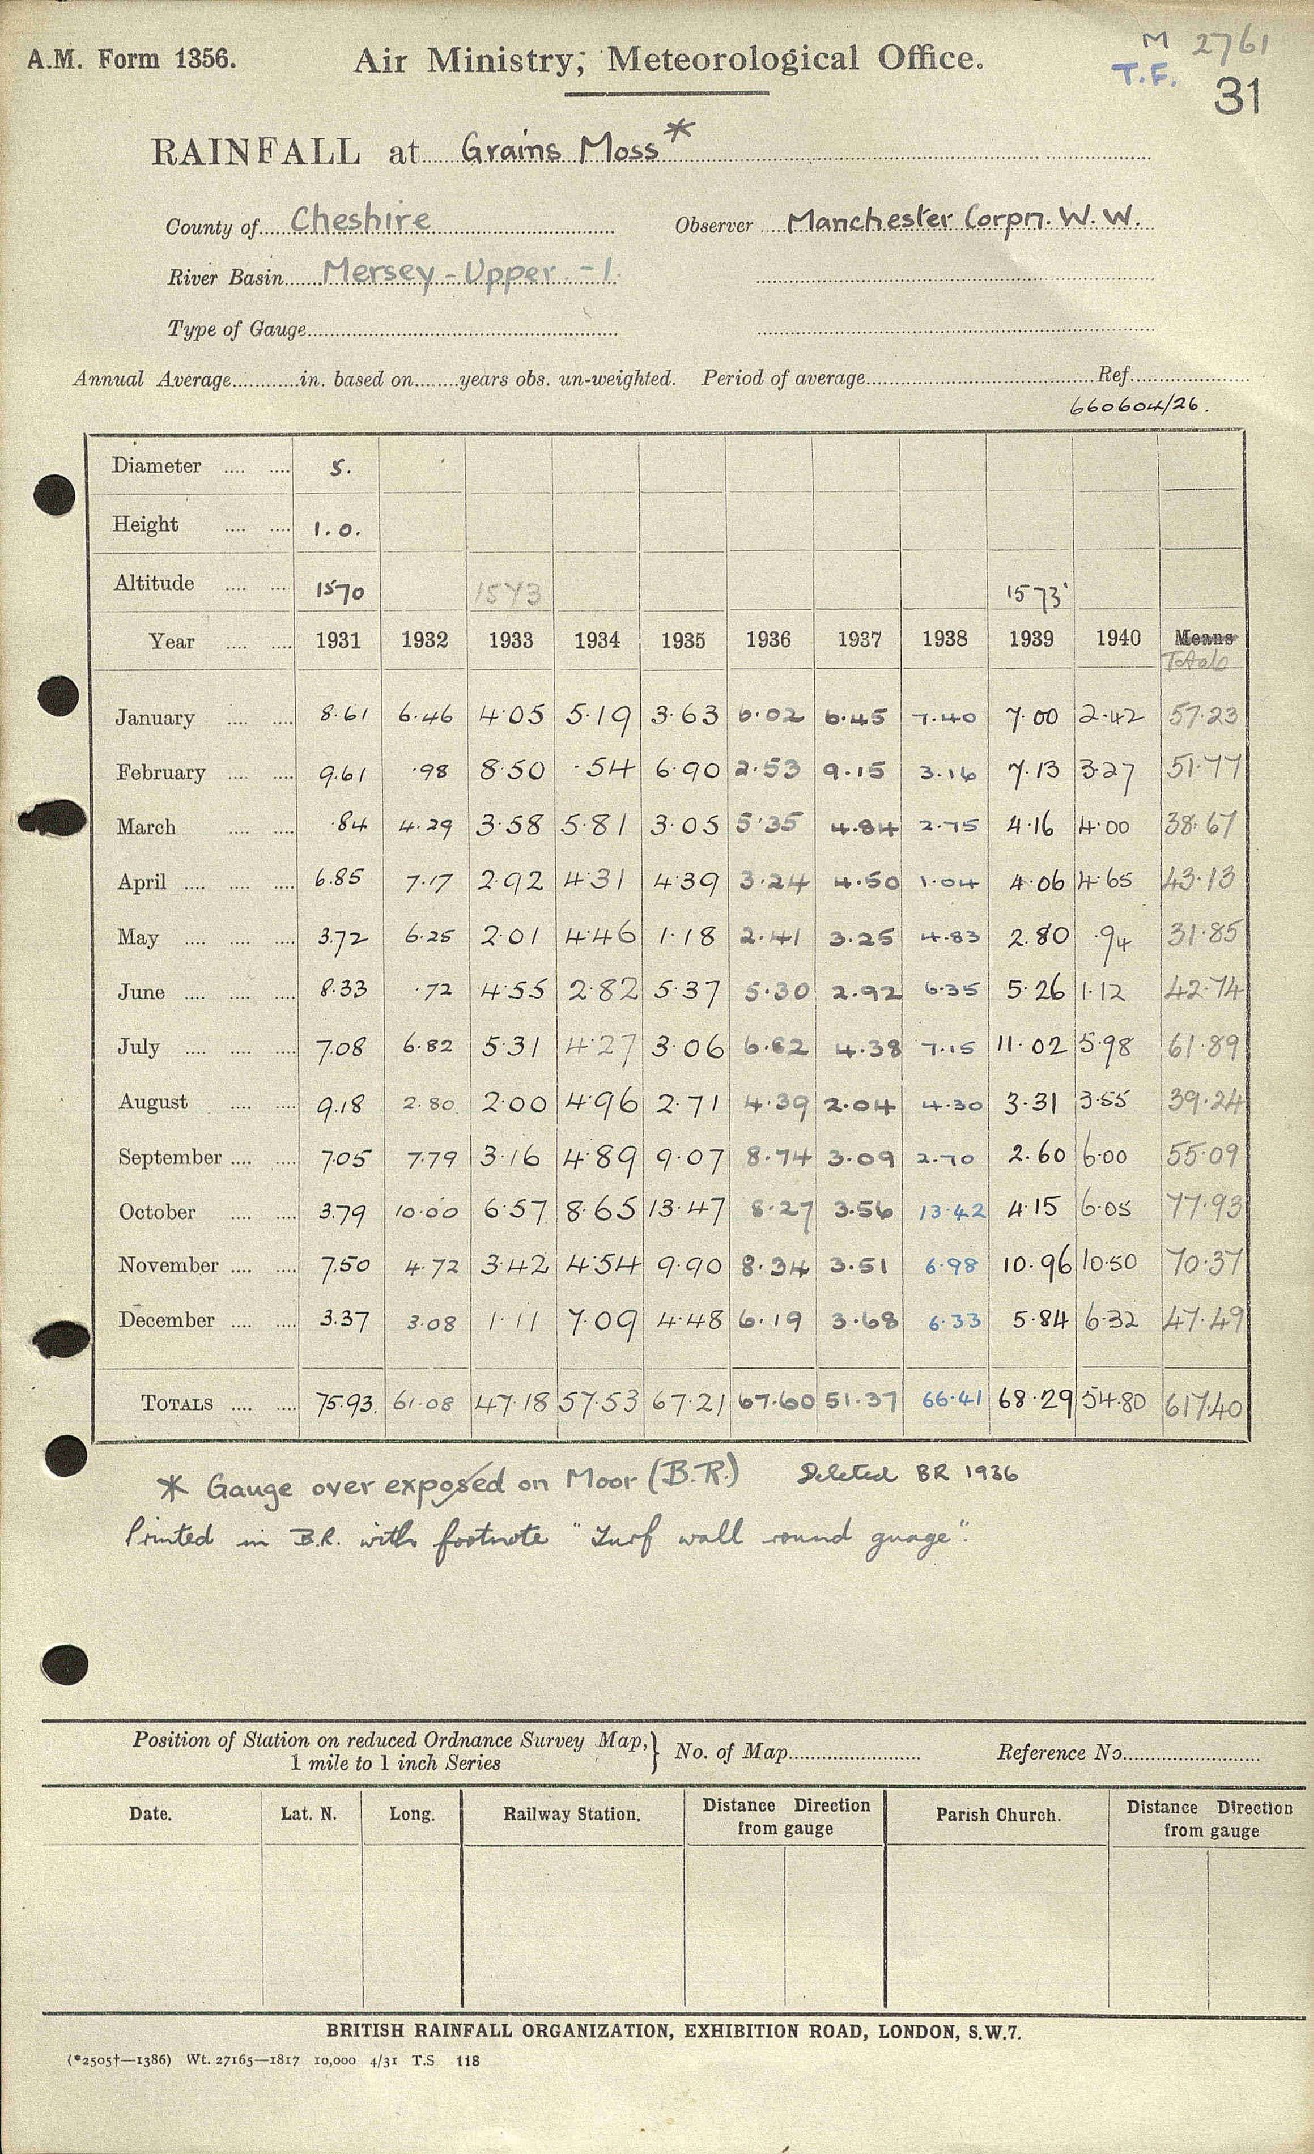 A.M. Form 1356.
Air Ministry, Meteorological Office.
M 2761
T.F.
31
RAINFALL at Grains Moss *
County of Cheshire Observer Manchester Corpn. W. W.
River Basin Mersey - Upper - 1.
Type of Gauge
Annual Average in. based on years obs. un-weighted. Period of average Ref.
660604/26.
Diameter 5.
Height 1.0.
Altitude 1570 1573 1573'
Year 1931 1932 1933 1934 1935 1936 1937 1938 1939 1940 Means
Totals
January 8.61 6.46 4.05 5.19 3.63 6.02 6.45 7.40 7.00 2.42 57.23
February 9.61 .98 8.50 .54 6.90 2.53 9.15 3.16 7.13 3.27 51.77
March .84 4.29 3.58 5.81 3.05 5.35 4.84 2.75 4.16 4.00 38.67
April 6.85 7.17 2.92 4.31 4.39 3.24 4.50 1.04 4.06 4.65 43.13
May 3.72 6.25 2.01 4.46 1.18 2.41 3.25 4.83 2.80 .94 31.85
June 8.33 .72 4.55 2.82 5.37 5.30 2.92 6.35 5.26 1.12 42.74
July 7.08 6.82 5.31 4.27 3.06 6.82 4.38 7.15 11.02 5.98 61.89
August 9.18 2.80 2.00 4.96 2.71 4.39 2.04 4.30 3.31 3.55 39.24
September 7.05 7.79 3.16 4.89 9.07 8.74 3.09 2.70 2.60 6.00 55.09
October 3.79 10.00 6.57 8.65 13.47 8.27 3.56 13.42 4.15 6.05 77.93
November 7.50 4.72 3.42 4.54 9.90 8.34 3.51 6.98 10.96 10.50 70.37
December 3.37 3.08 1.11 7.09 4.48 6.19 3.68 6.33 5.84 6.32 47.49
TOTALS 75.93 61.08 47.18 57.53 67.21 67.60 51.37 66.41 68.29 54.80 617.40
* Gauge over exposed on Moor (B.R.) Deleted BR 1936
Printed in B.R. with footnote "Turf wall round guage".
Position of Station on reduced Ordnance Survey Map,
1 mile to 1 inch Series } No. of Map Reference No.
Date. Lat. N. Long. Railway Station. Distance Direction from gauge Parish Church. Distance Direction from gauge
BRITISH RAINFALL ORGANIZATION, EXHIBITION ROAD, LONDON, S.W.7.
(*2505†—1386) Wt. 27165—1817 10,000 4/31 T.S 118